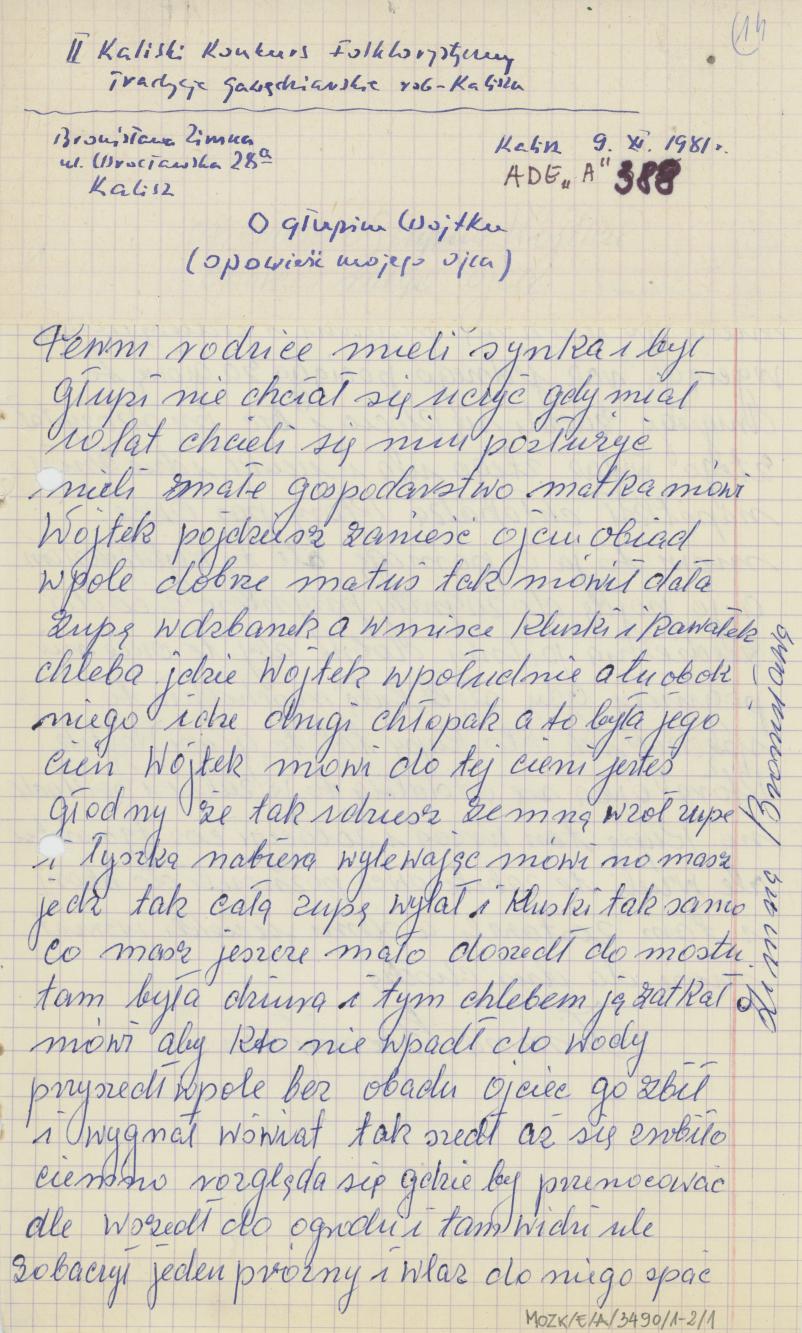 (14
II Kaliski Konkurs Folklorystyczny
Tradycje Gawędziarskie reb-Kalisza
Bronisława Zimna
ul. Wrocławska 28ª
Kalisz
Kalisz 9. XI. 1981 r.
ADE „A" 388
O głupim Wojtku
(opowieść mojego ojca)
Pewni rodzice mieli synka i był
głupi nie chciał się uczyć gdy miał
10 lat chcieli się nim posłużyć
mieli małe gospodarstwo matka mówi
Wojtek pójdziesz zanieść ojcu obiad
wpole dobrze matuś tak mówił dała
zupę wdzbanek a wmisce kluski i kawałek
chleba jdzie Wojtek wpołudnie a tu obok
niego idze drugi chłopak a to była jego
cień Wójtek mowi do tej cieni jesteś
głodny że tak idziesz zemną wzoł zupe
i łyszką nabiera wylewając mówi no masz
jedz tak całą zupę wylał i kluski tak samo
co masz jeszcze mało doszedł do mostu
tam była dziura i tym chlebem ją zatkał
mówi aby kto nie wpadł do wody
przyszedł wpole bez obadu ojciec go zbił
i wygnał wświat tak szedł aż się zrobiło
ciemno rozgląda się gdzie by przenocować
dle wszedł do ogrodu i tam widzi ule
zobaczył jeden prózny i wlaz do niego spać
Zimną Bronisławą
MOZK/E/A/3490/1-2/1